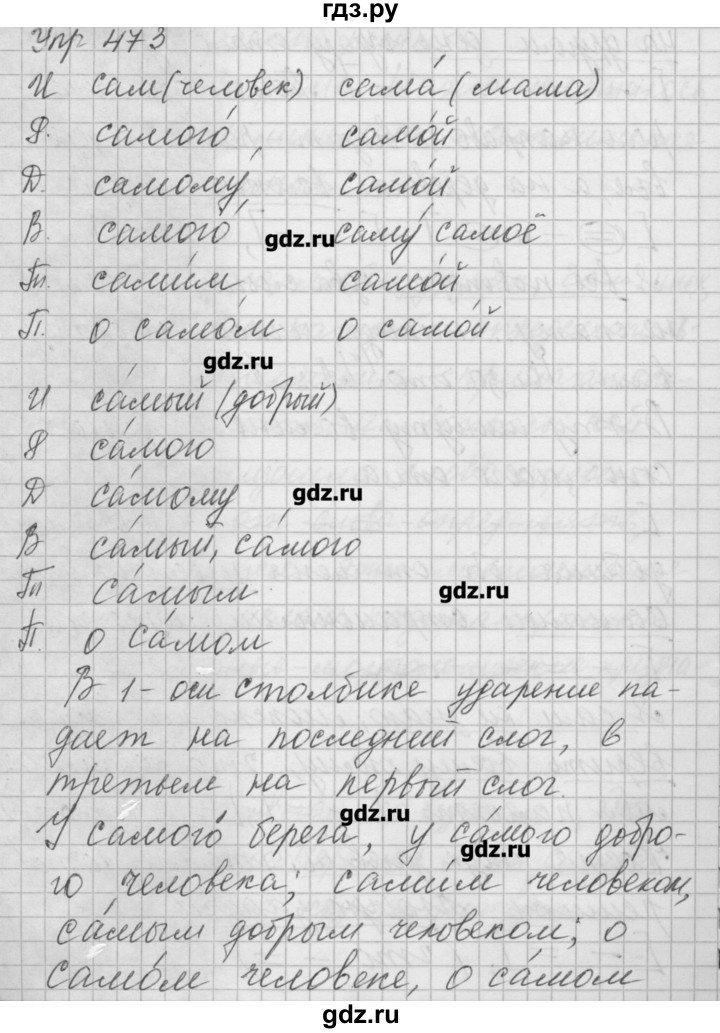 гдз.ру
Упр 473
И сам (человек) сама́ (мама)
Р. самого́, само́й
Д. самому́ само́й
В. самого́ саму́ самоё
gdz.ru
Тв. сами́м само́й
П. о само́м о само́й
gdz.ru
И са́мый (добрый)
Р са́мого
Д са́мому
gdz.ru
В са́мый, са́мого
Тв са́мым
gdz.ru
П. о са́мом
В 1-ом столбике ударение па-
дает на последний слог, в
третьем на первый слог.
gdz.ru
У самого́ берега, у са́мого добро-
gdz.ru
го человека; сами́м человеком,
са́мым добрым человеком; о
само́м человеке, о са́мом
gdz.ru